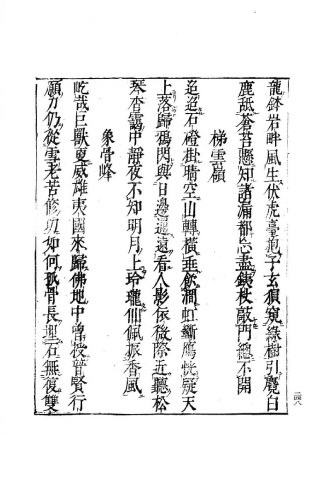 龍鉢岩畔風生伏虎臺抱子玄猿窺綠樹引麑白
鹿舐蒼苔懸知諸漏都忘盡錫杖敲門總不開
梯雲嶺
迢迢石磴掛晴空山轉橫垂飲澗虹斷鴈恍疑天
上落歸鴉閃與日邊通遠看人影依微際近聽松
琴杳靄中靜夜不知明月上玲瓏仙佩振香風
象骨峰
屹哉巨獸夐威雄夷國來歸佛地中曾授普賢行
願力仍從雪老苦修功如何孤骨長埋石無復雙
二四八